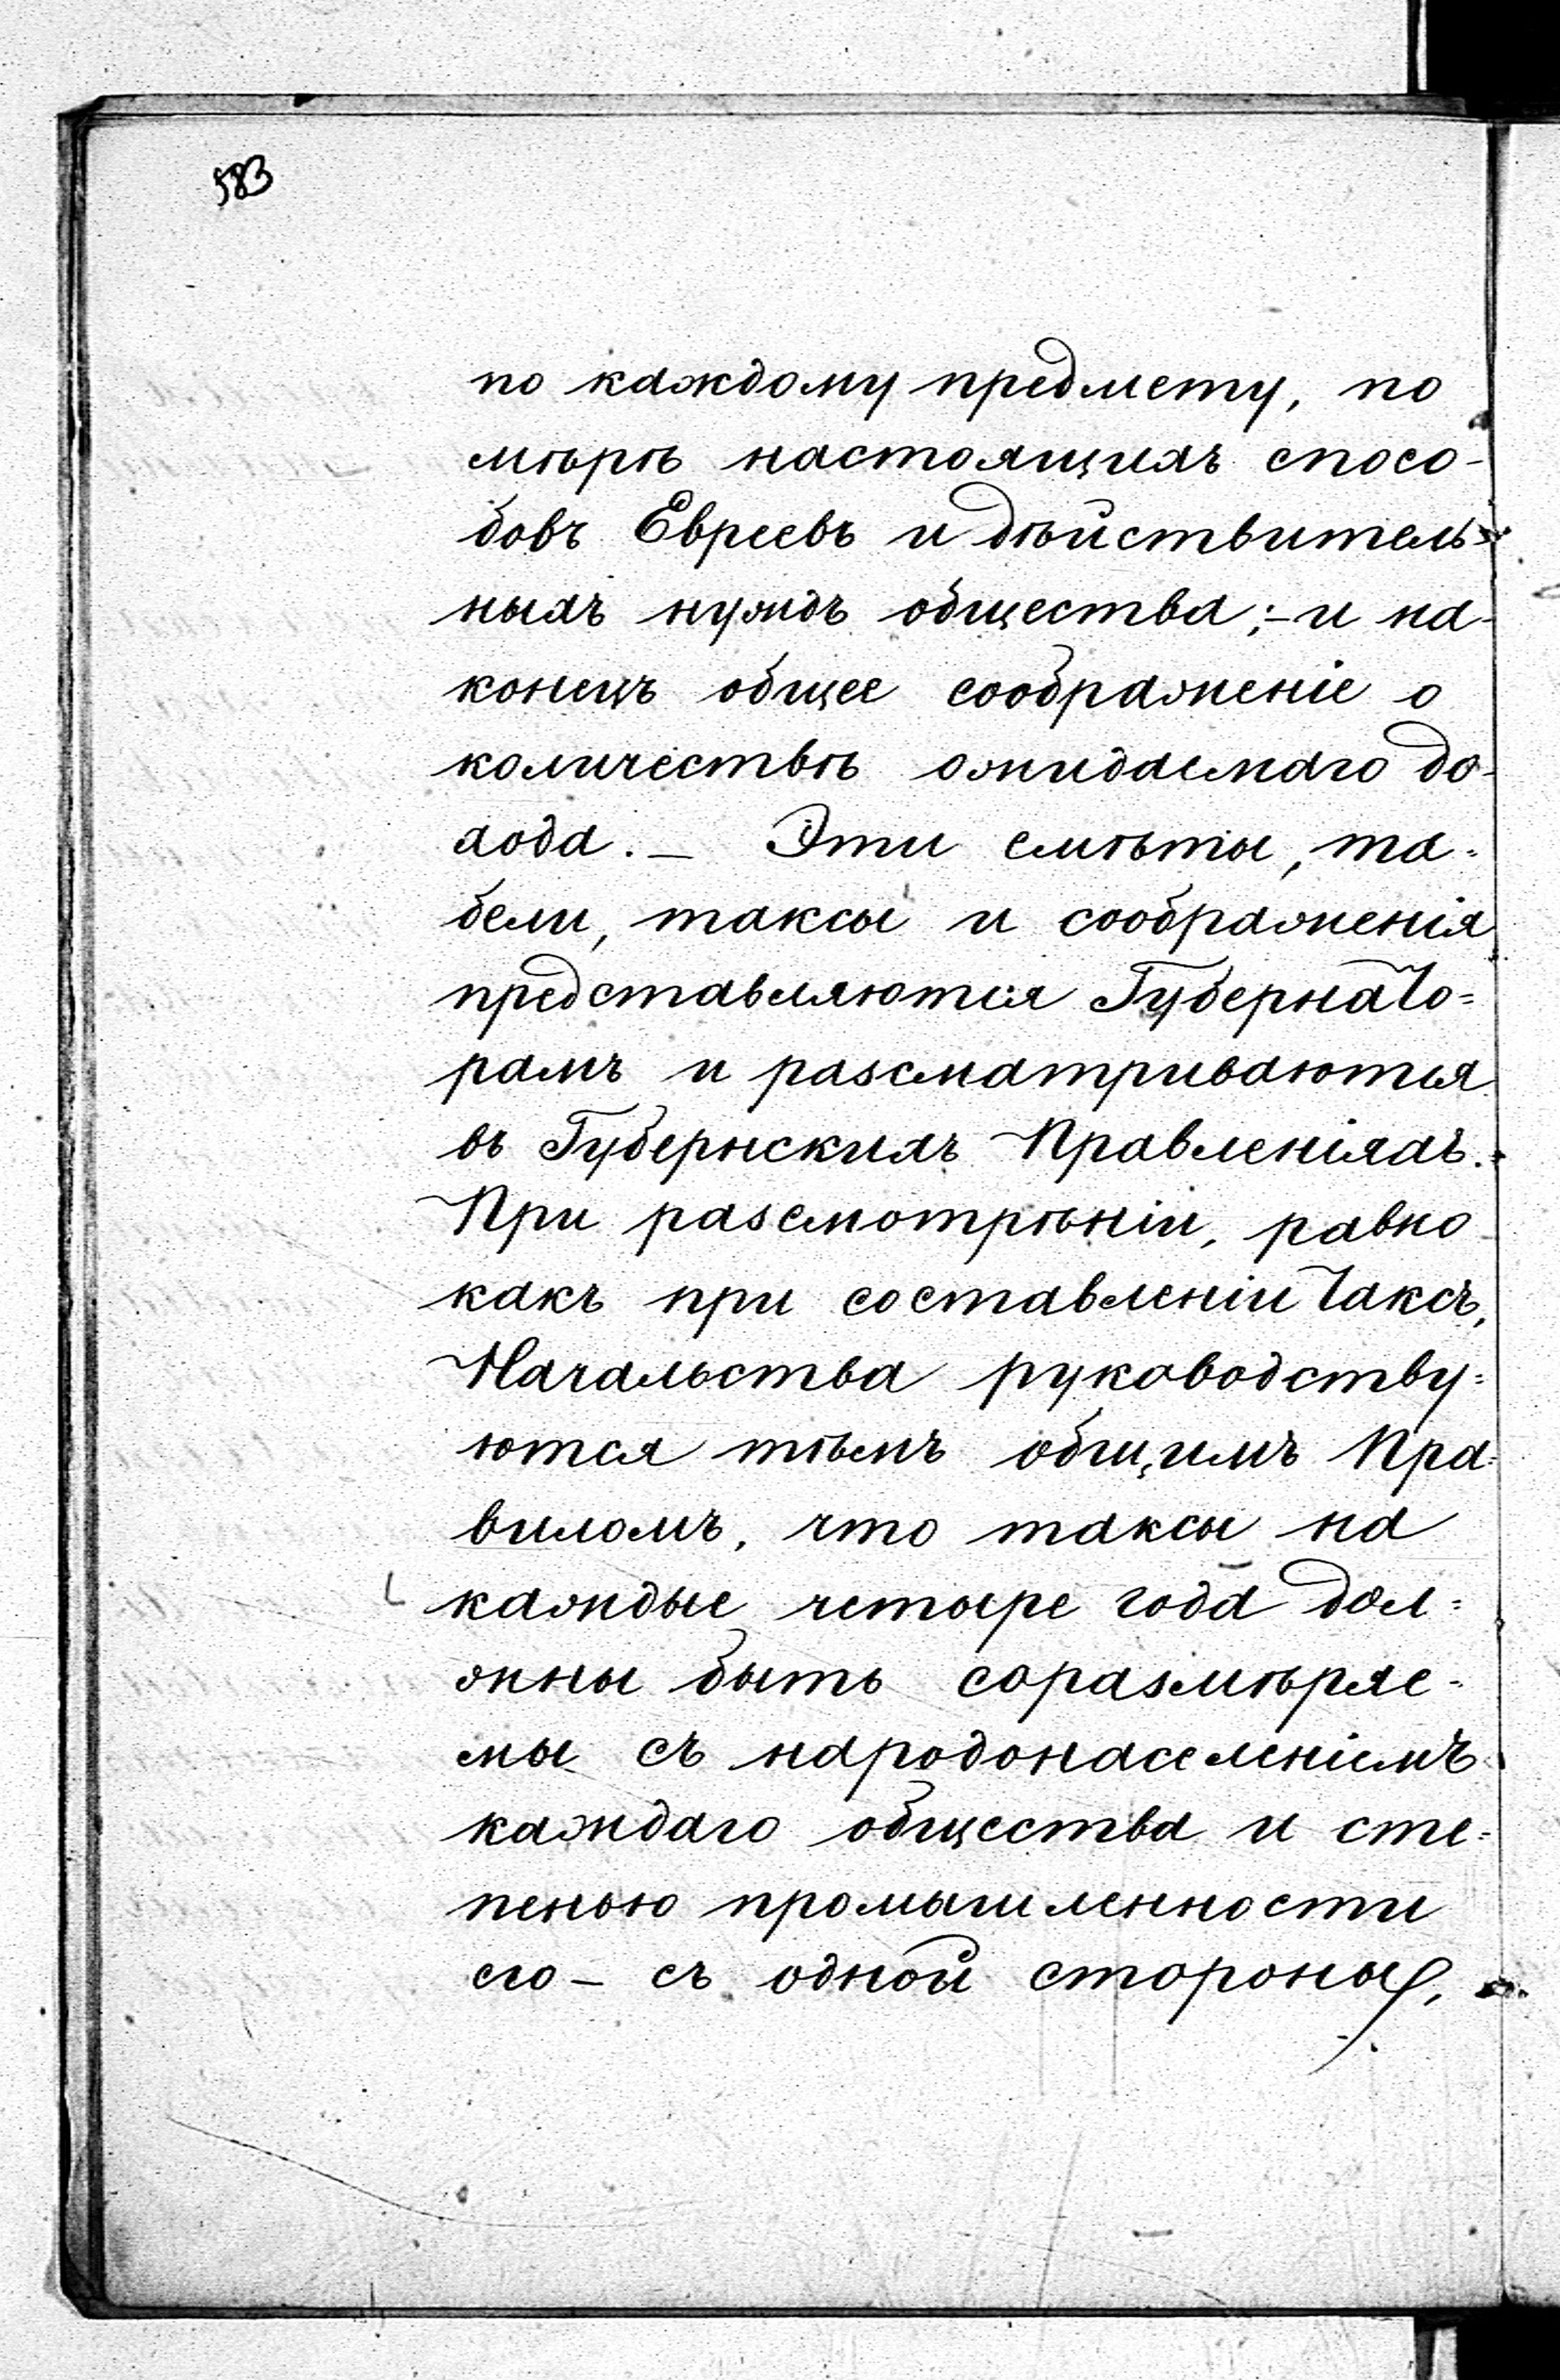 583
по каждому предмету, по
мѣрѣ настоящихъ спосо-
бовъ Евреевъ и дѣйствитель=
ныхъ нуждъ общества;- и на-
конецъ общее соображеніе о
количествѣ ожидаемаго до-
хода. — Эти смѣты, та-
бели, таксы и соображенія
представляются Губернато=
рамъ и разсматриваются
въ Губернскихъ Правленіяхъ.
При разсмотрѣніи, равно
какъ при составленіи таксъ,
Начальства руководству=
ются тѣмъ общимъ Пра=
виломъ, что таксы на
каждые четыре года дол=
жны быть соразмѣряе-
мы съ народонаселеніемъ
каждаго общества и сте=
пенью промышленности
его — съ одной стороны,